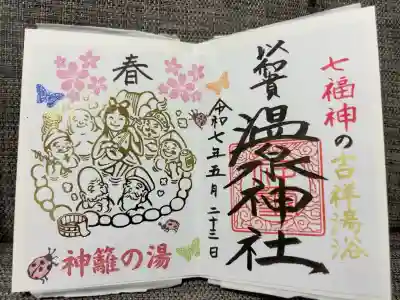 七福神の吉祥湯浴
温泉神社
令和七年五月二十三日
春
神籬の湯